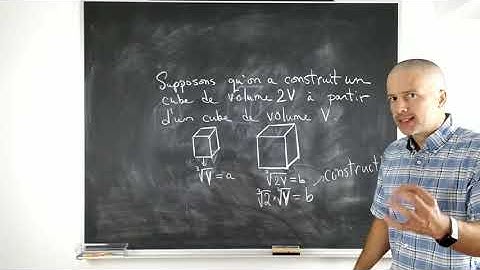 Supposons qu'on a construit un
cube de volume 2V à partir
d'un cube de volume V.
∛V = a
∛2V = b
∛2 · ∛V = b
construct